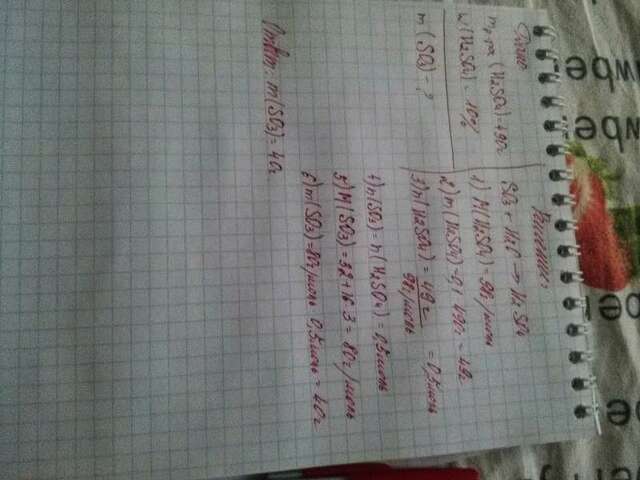 Дано:
m р-ра (H₂SO₄)=490г
ω(H₂SO₄)=10%
m(SO₃)-?
Решение:
SO₃ + H₂O → H₂SO₄
1) M(H₂SO₄)=98г/моль
2) m(H₂SO₄)=0,1·490г=49г
3) n(H₂SO₄)=49г/98г/моль=0,5моль
4) n(SO₃)=n(H₂SO₄)=0,5моль
5) M(SO₃)=32+16·3=80г/моль
6) m(SO₃)=80г/моль·0,5моль=40г
Ответ: m(SO₃)=40г